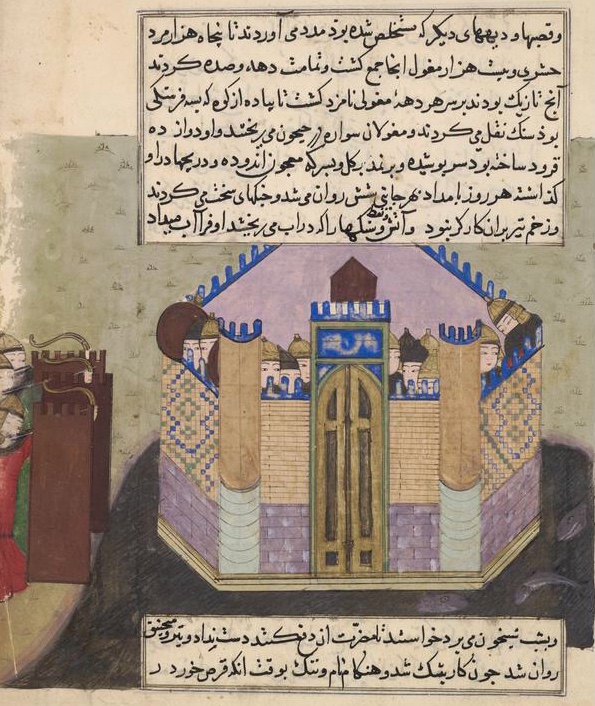 وقصبها و دیههای دیگر که مستخلص شده بود مدد می اوردند تا پنجاه هزار مرد
حشری و بیست هزار مغول انجا جمع کشت و تمامت دهه و صده کردند
آنج تازیک بودند بر سر هر دهۀ مغولی نامزد کشت تا پیاده از کوه که بسه فرسنکی
بوذ سنک نقل می کردند و مغولان سواره در جیحون می ریختند و او دوازده
قرود ساخته بود سر پوشیده و بر نمد بر کل و بسرکه معجون اندوده و دریچها درو
کذاشته هر روز بامداد بهر جانبی شش روان می شد و جنکهای سخت می کردند
و زخم تیر بران کارکر نبود و آتش و نفط و سنکها را که در اب می ریختند او فرا آب میداد
و بشب شبیخون می برد خواستند تا مضرت ان دفع کنند دست نداد و تیر و منجنیق
روان شد چون کار بتنک شد و هنکام نام و ننک بوقت انکه قرص خور در